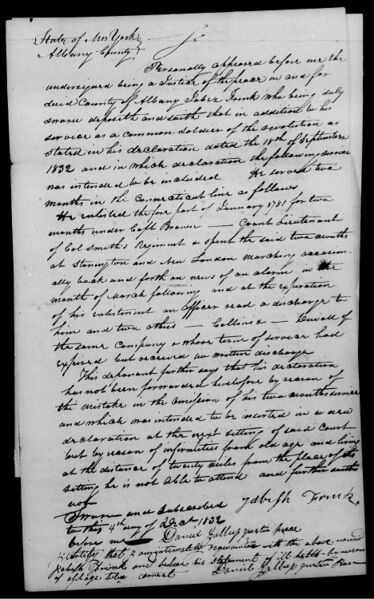 State of New York
Albany County } ss
Personally appeared before me the
undersigned being a Justice of the peace in and for
said County of Albany Jabez Frink who being duly
sworn deposeth and saith that in addition to his
service as a common soldier of the revolution as
stated in his declaration dated the 18th of September
1832 and in which declaration the following service
was intended to be included He served two
months in the Connecticut line as follows
He enlisted the fore part of January 1781 for two
months under Capt Lieutenant
of Col Smiths Regiment & spent the said two months
at Stonington and New London marching occasion
ally back and forth on news of an alarm in the
month of March following and at the expiration
of his enlistment an officer read a discharge to
him and two others — Collins & of
the same Company whose term of service had
expired but received no written discharge
This deponent further says that his declaration
has not been forwarded heretofore by reason of
the mistake in the omission of his two months service
and which was intended to be inserted in a new
declaration at the next sitting of said Court
but by reason of infirmities from old age and living
at the distance of twenty miles from the place of its
sitting he is not able to attend and further saith
not
Sworn and Subscribed Jabish Frink
to this 4th day of Dec 1832
before me Daniel justice peace
I certify that I am acquainted with the above named
Jabish Frink and believe his statement of ill health by reason
of old age to be correct Daniel justice peace